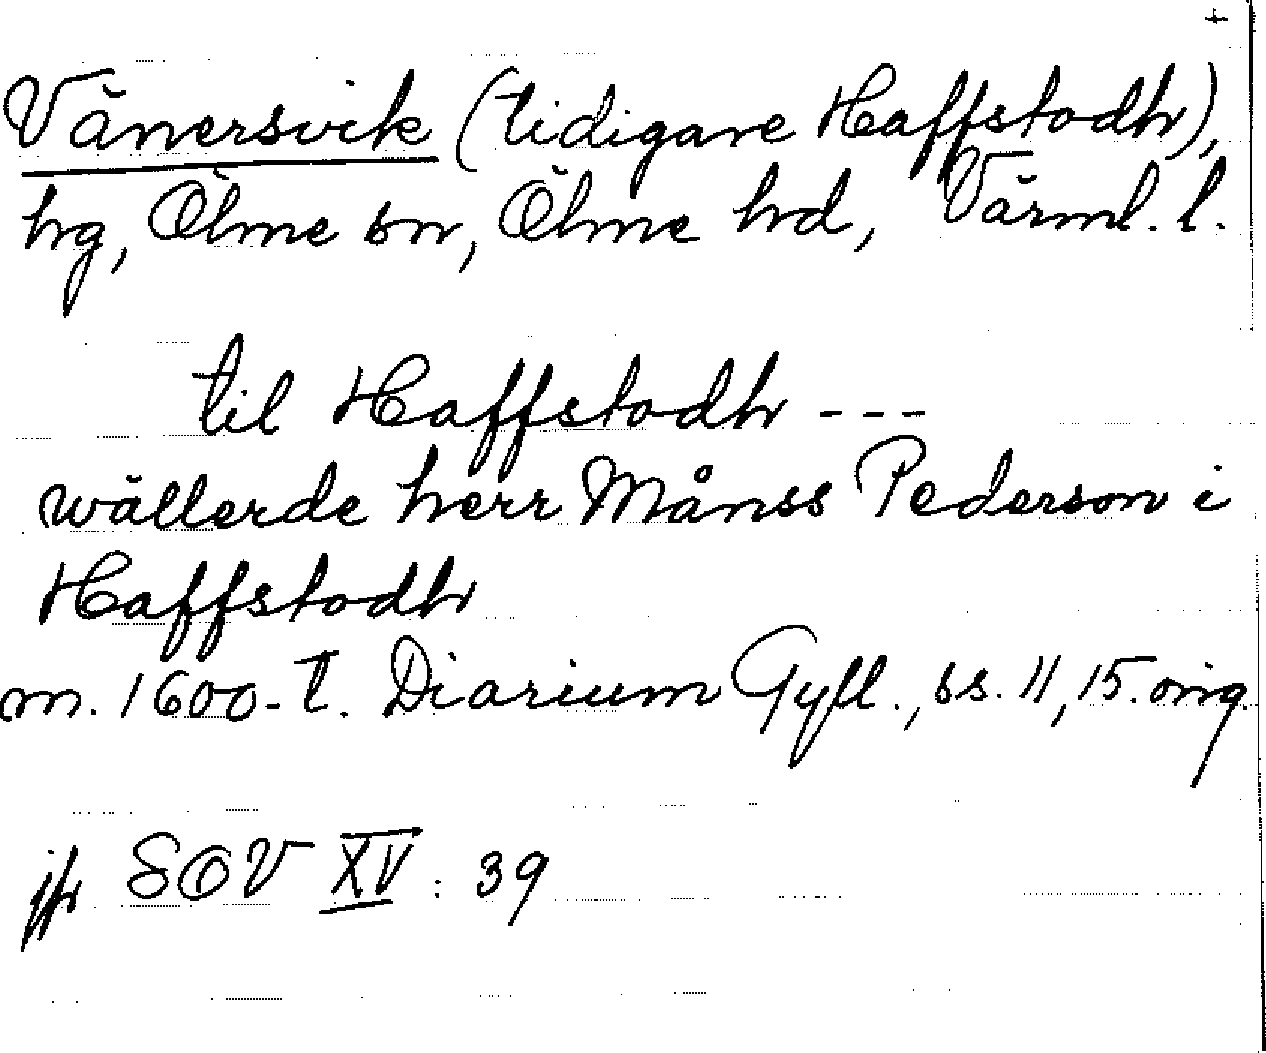 +
Vänersvik (tidigare Haffstodh),
hg, Ölme sn, Ölme hd, Värml. l.
til Haffstodh ---
wällerde herr Månss Pederson i
Haffstodh
m. 1600-t. Diarium Gyll., ss. 11, 15. orig.
jfr SOV XV : 39